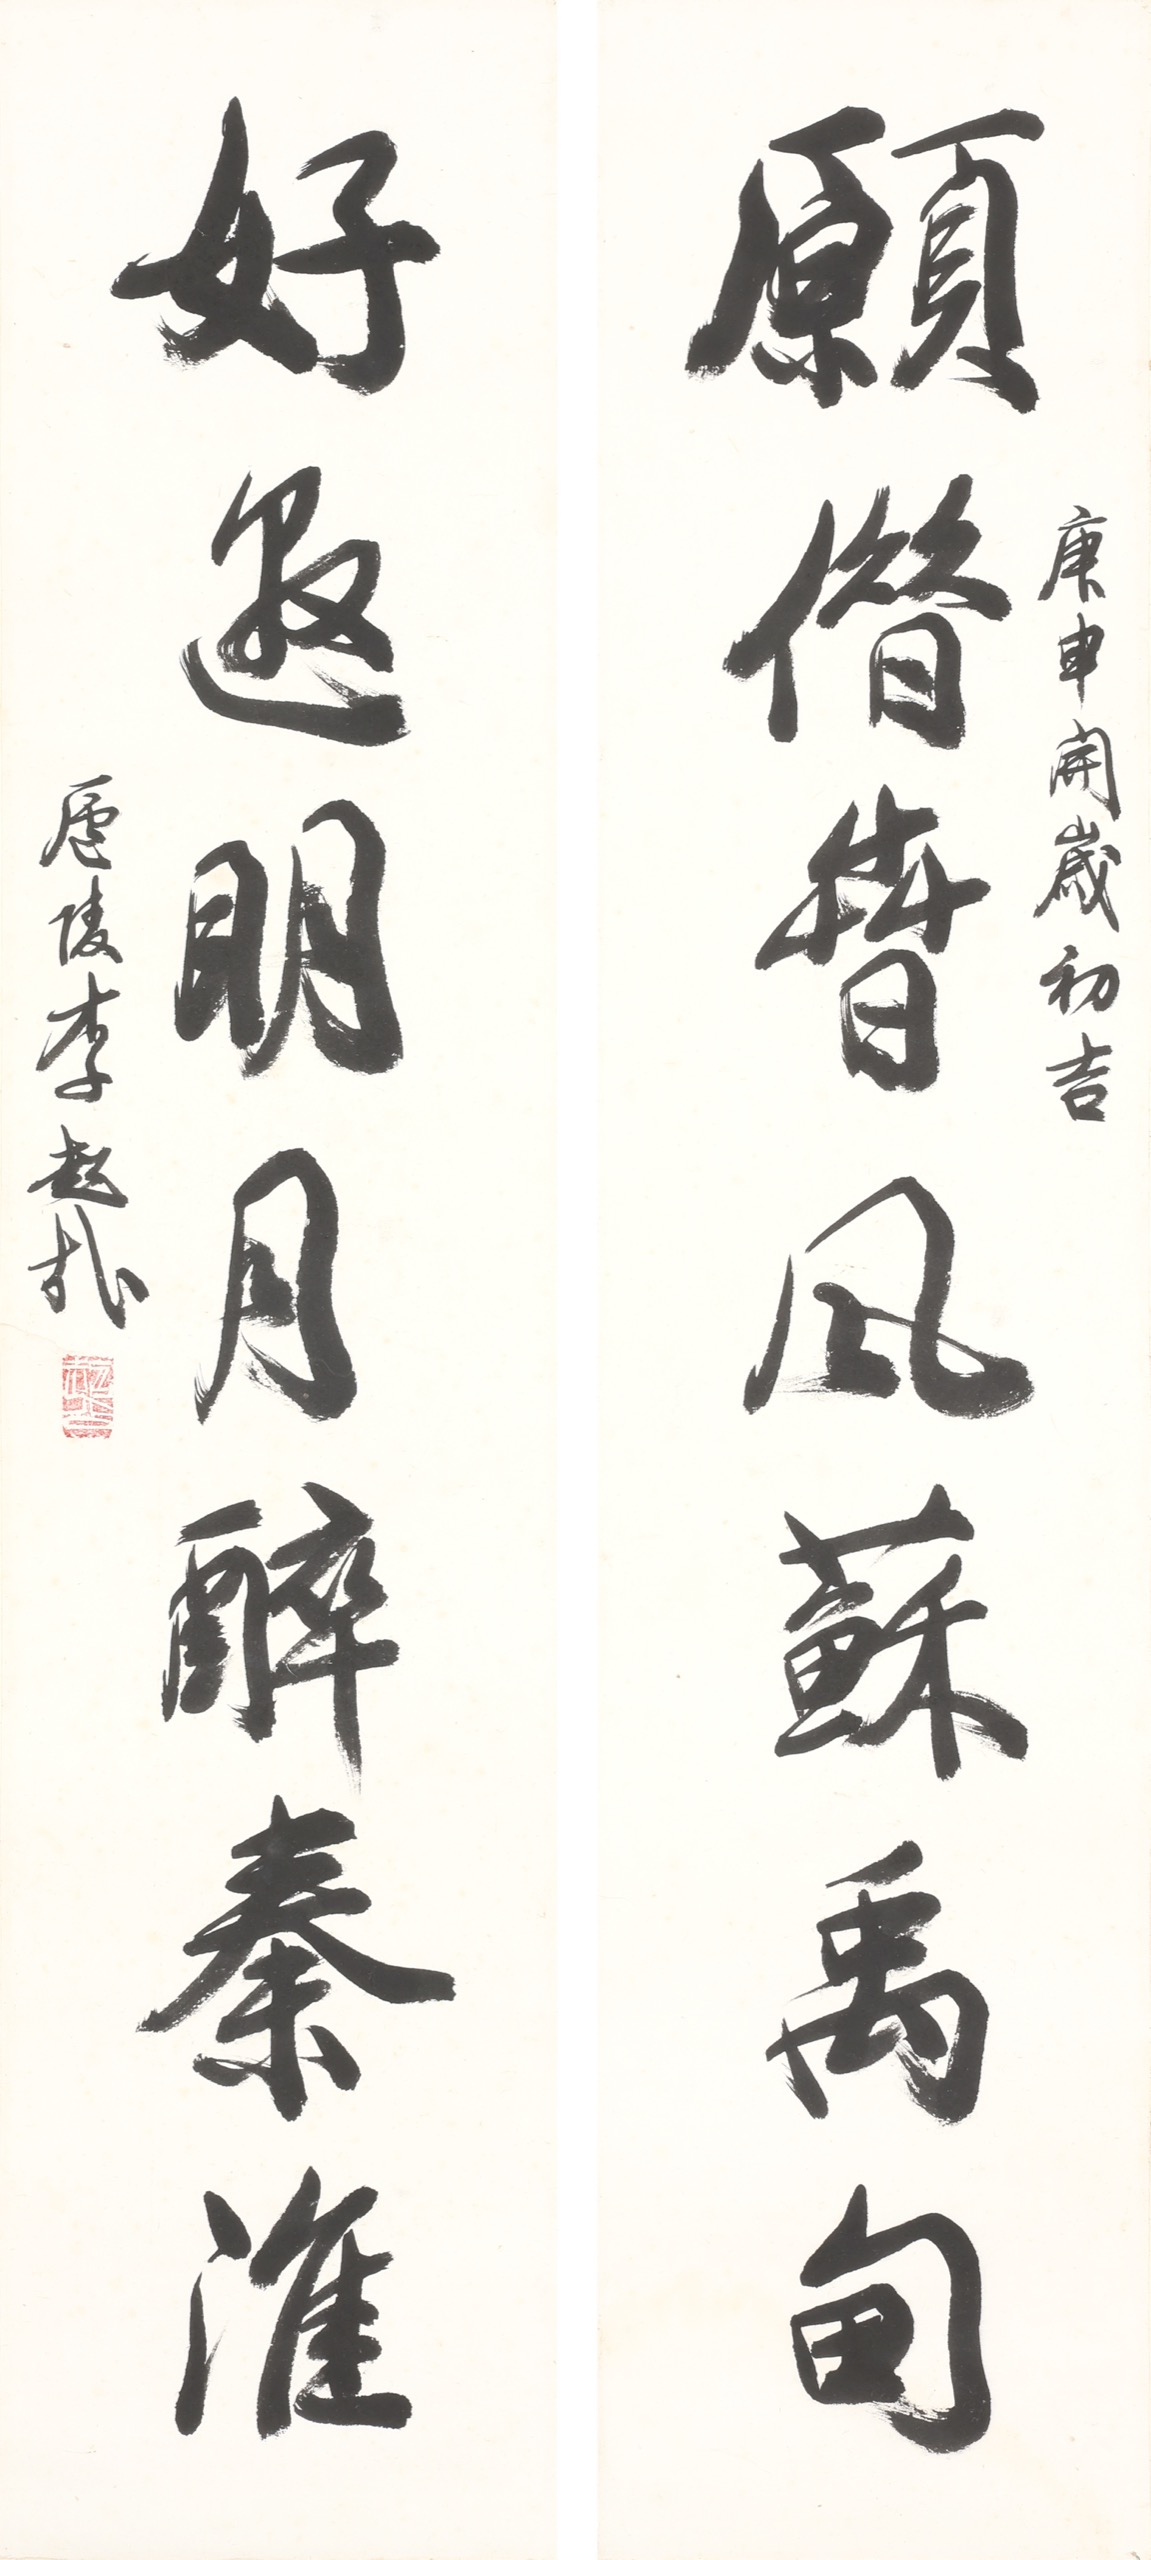 願借春風蘇禹甸
庚申開歲初吉
好邀明月醉秦淮
廬陵李超哉